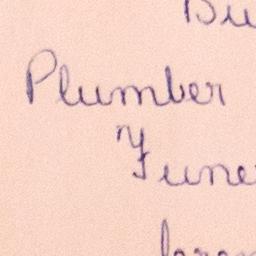 Bu
Plumber
Fune